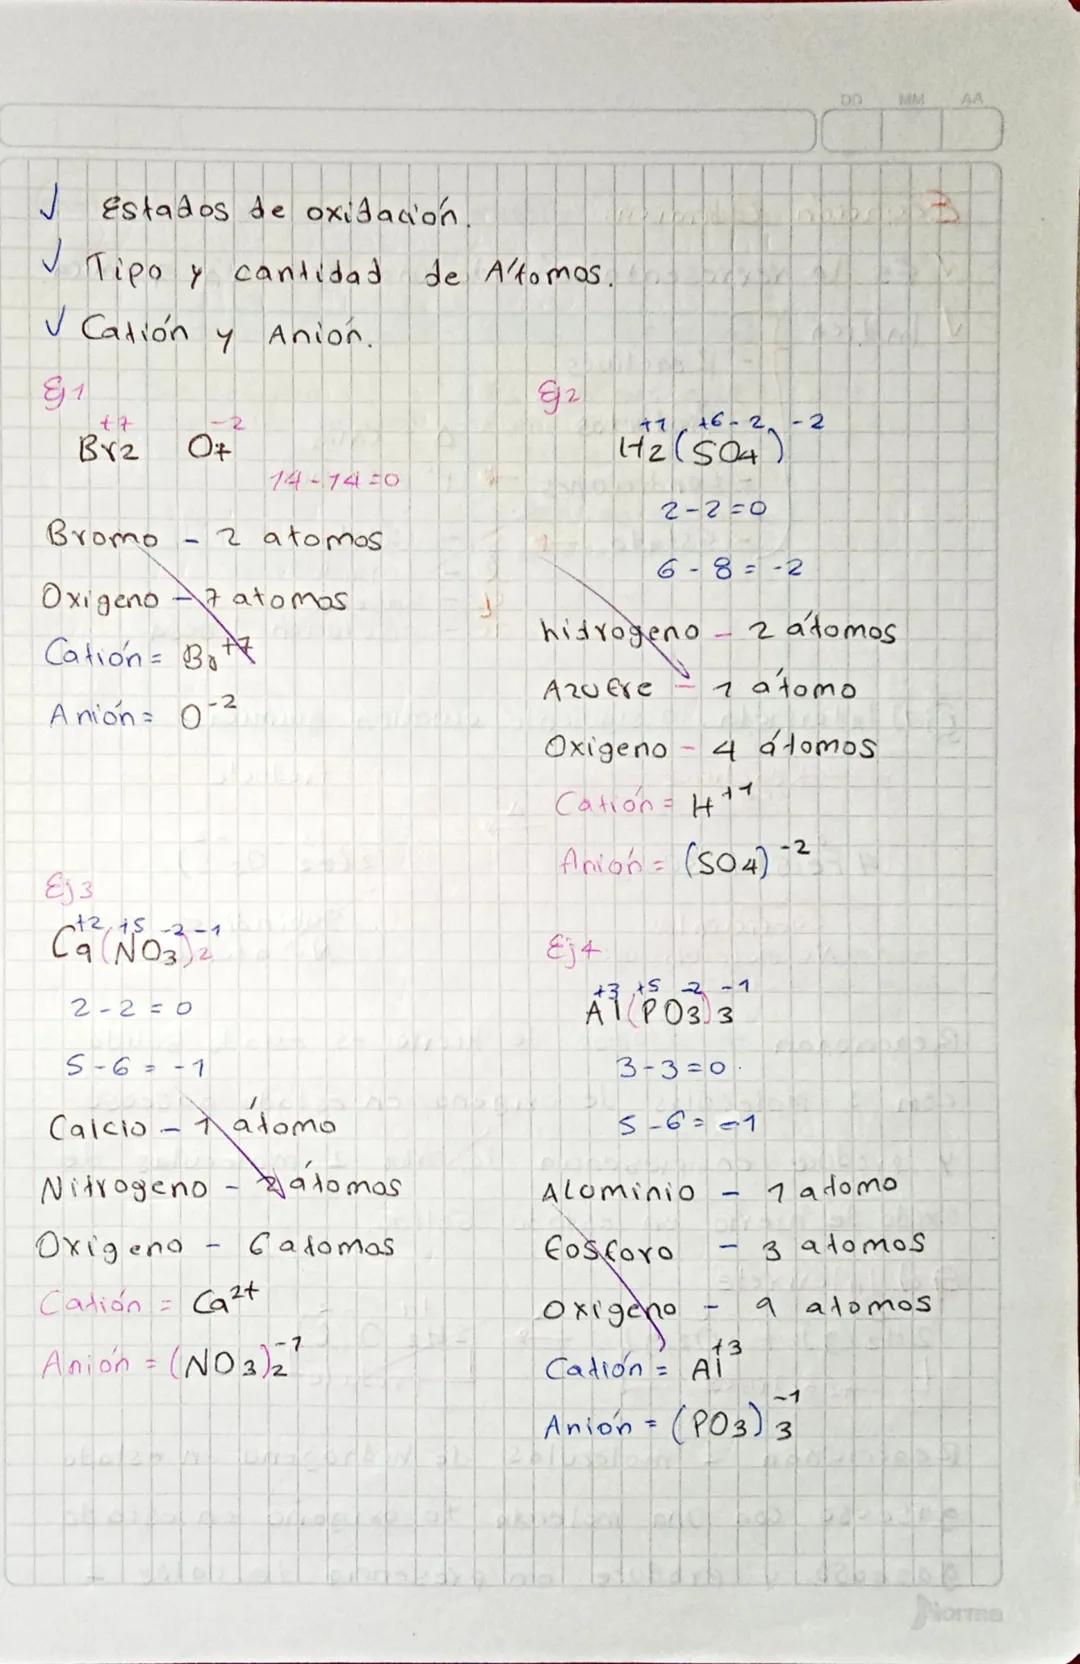 DD MM AA
√ Estados de oxidación.
√ Tipo y cantidad de Átomos.
√ Catión y Anión.
Ej1
+7 -2
Br2 O7
14-14=0
Bromo - 2 atomos
Oxigeno - 7 atomos
Catión = Br+7
Anión = O-2
Ej2
+1 +6-2 -2
H2(SO4)
2-2=0
6-8=-2
hidrogeno - 2 átomos
Azufre - 1 átomo
Oxigeno - 4 átomos
Catión = H+1
Anión = (SO4)-2
Ej3
+2 +5 -2 -1
Ca(NO3)2
2-2=0
5-6=-1
Calcio - 1 átomo
Nitrogeno - 2 átomos
Oxigeno - 6 atomos
Catión = Ca2+
Anión = (NO3)2-1
Ej4
+3 +5 -2 -1
Al(PO3)3
3-3=0.
5-6=-1
Aluminio - 1 atomo
fosforo - 3 atomos
oxigeno - 9 atomos
Catión = Al+3
Anión = (PO3)3-1
Norma